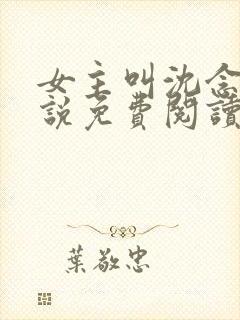 女主叫沈念
說免費閱讀
葉敬忠